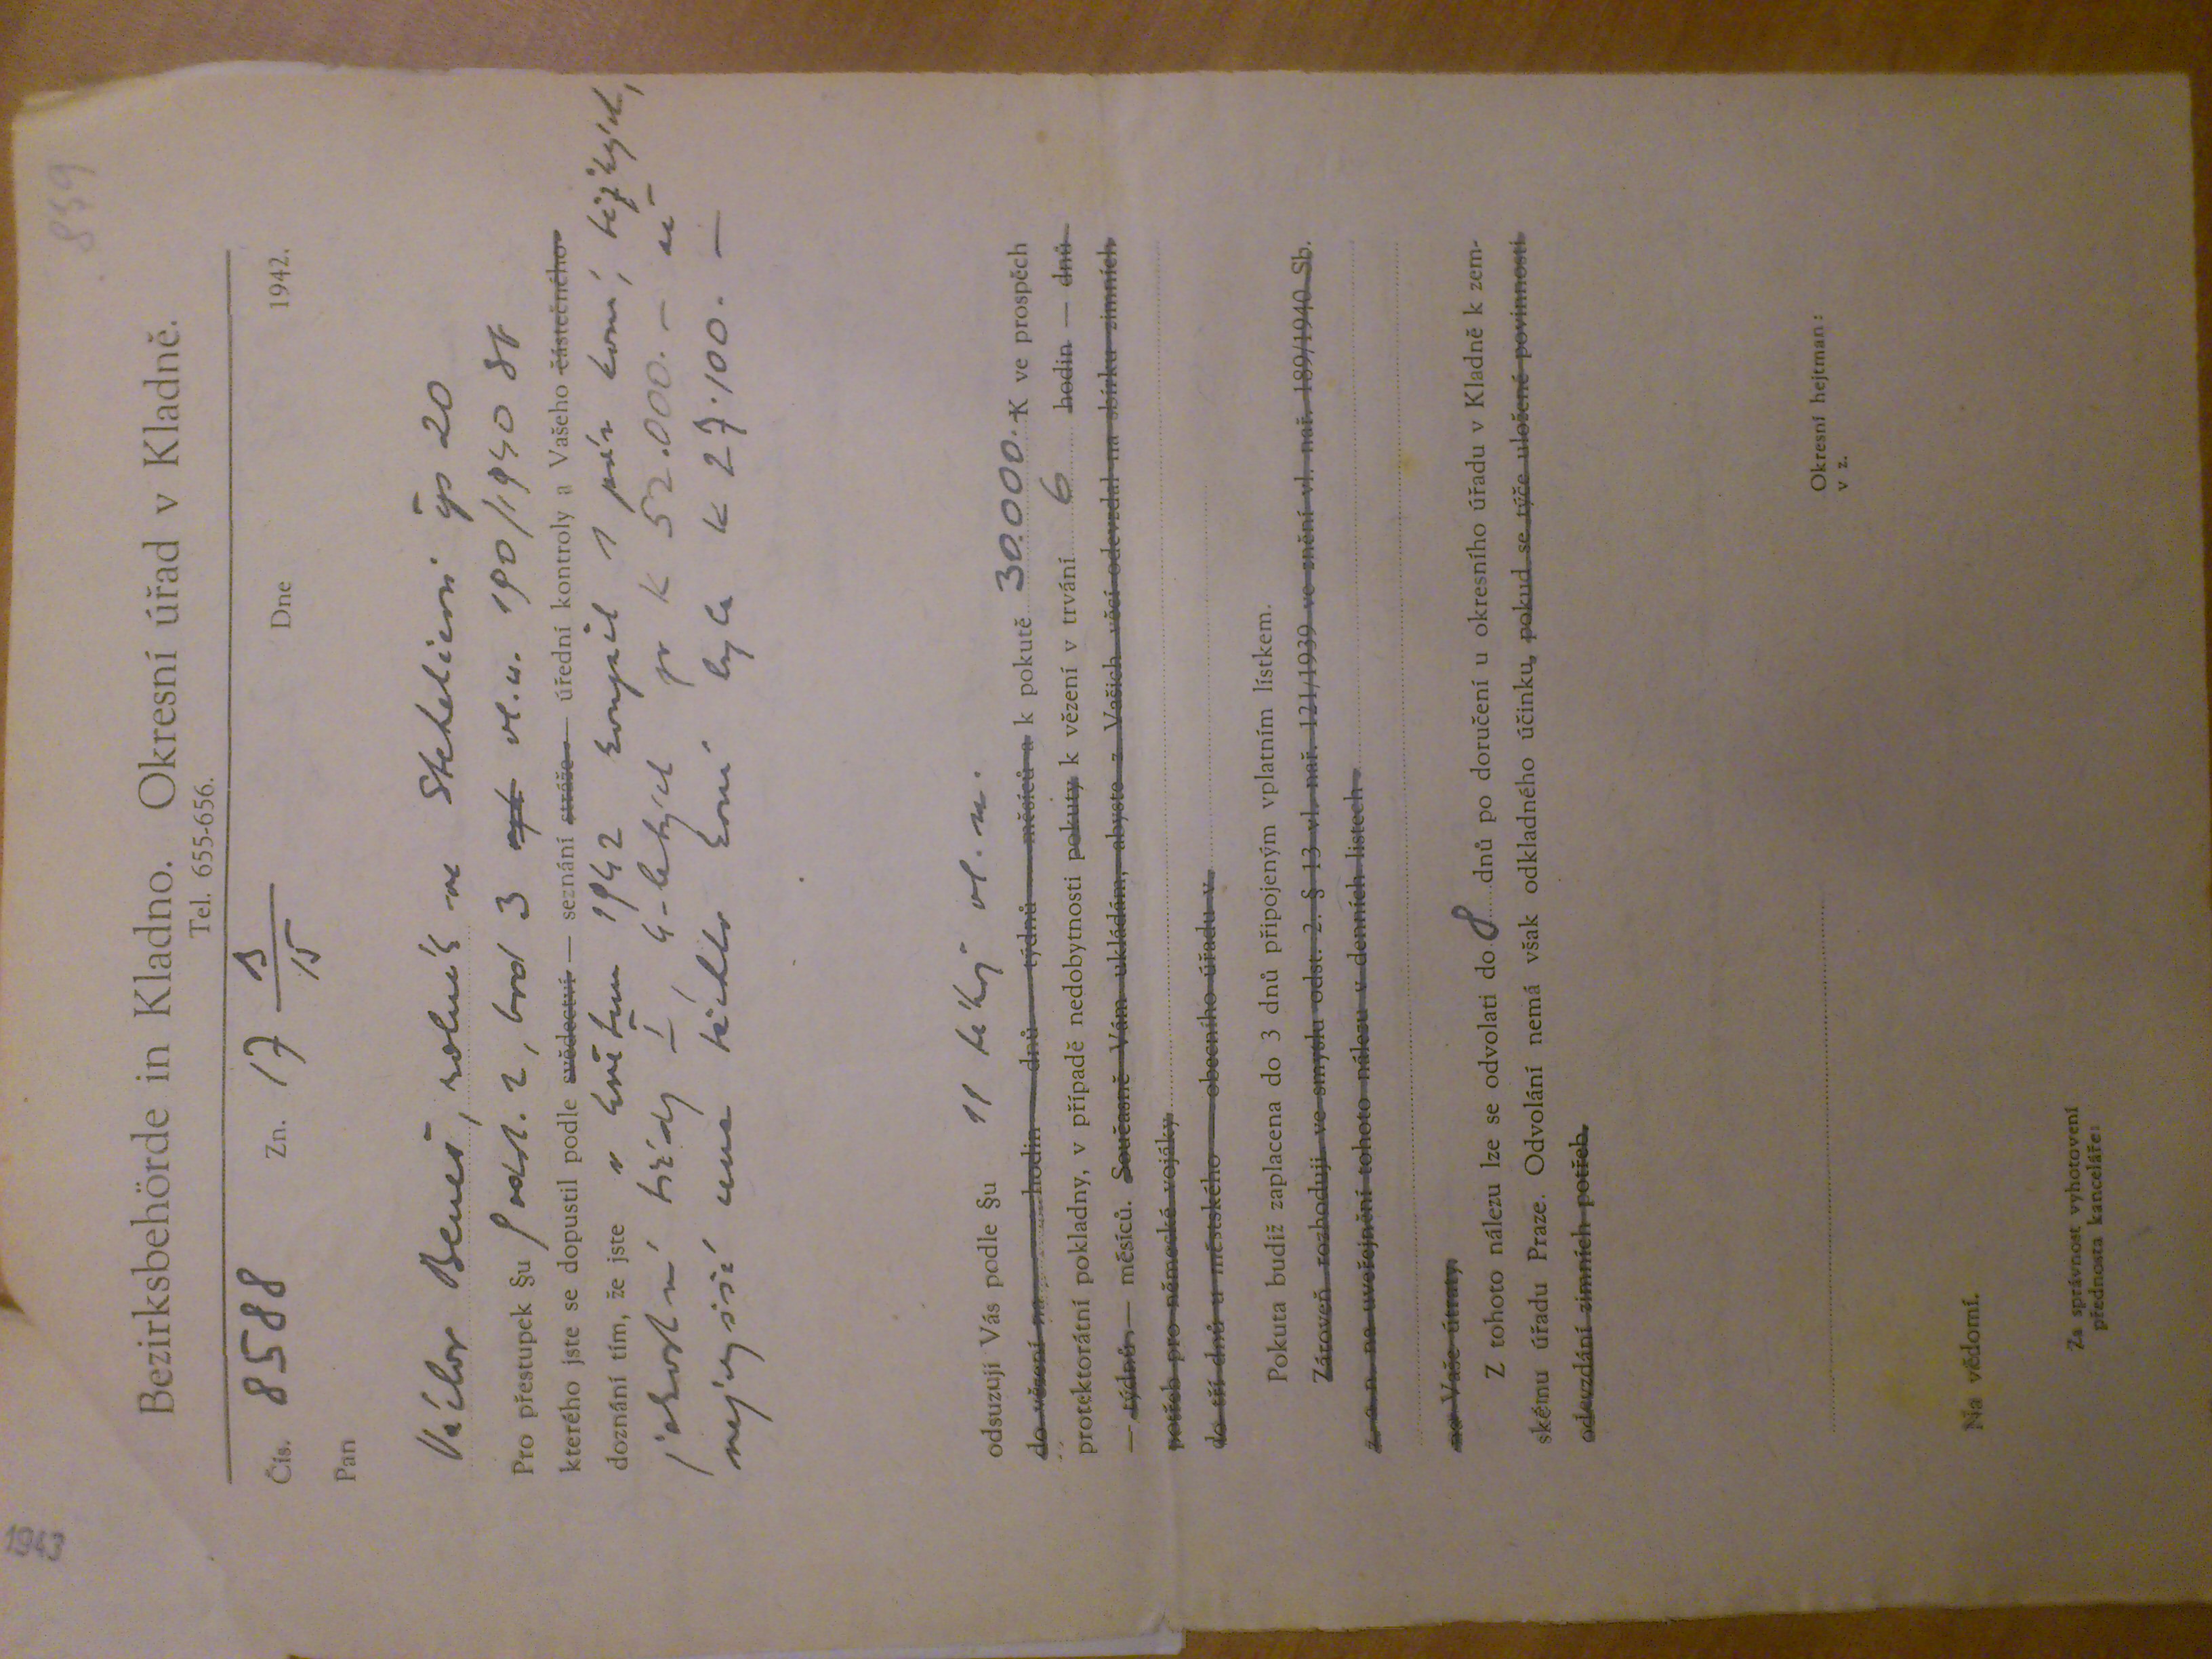 1943
859
Bezirksbehörde in Kladno. Okresní úřad v Kladně.
Tel. 655-656.
Čís. 8588 Zn. 17 B/15 Dne 1942.
Pan
Václav Beneš, rolník ve Stehelčevsi čp 20
Pro přestupek §u odst. 2, bod 3 vl.n. 190/1940 Sb
kterého jste se dopustil podle svědectví — seznání stráže — úřední kontroly a Vašeho částečného
doznání tím, že jste v květnu 1942 koupil 1 pár koní, těžkých,
jakostní třídy I, 4-letých za K 52.000.— ač
nejvyšší cena těchto koní byla K 27.100.—
odsuzuji Vás podle §u 11 téhož vl. n.
do vězení na hodin — dnů — týdnů — měsíců a k pokutě 30.000.- K ve prospěch
protektorátní pokladny, v případě nedobytnosti pokuty k vězení v trvání 6 hodin — dnů
— týdnů — měsíců. Současně Vám ukládám, abyste z Vašich věcí odevzdal na sbírku zimních
potřeb pro německé vojáky
do tří dnů u městského — obecního úřadu v
Pokuta budiž zaplacena do 3 dnů připojeným vplatním lístkem.
Zároveň rozhoduji ve smyslu odst. 2. § 13 vl. nař. 121/1939 ve znění vl. nař. 189/1940 Sb.
z. a n. na uveřejnění tohoto nálezu v denních listech
na Vaše útraty.
Z tohoto nálezu lze se odvolati do 8 dnů po doručení u okresního úřadu v Kladně k zem-
skému úřadu Praze. Odvolání nemá však odkladného účinku, pokud se týče uložené povinnosti
odevzdání zimních potřeb.
Okresní hejtman:
v z.
Na vědomí.
Za správnost vyhotovení
přednosta kanceláře: